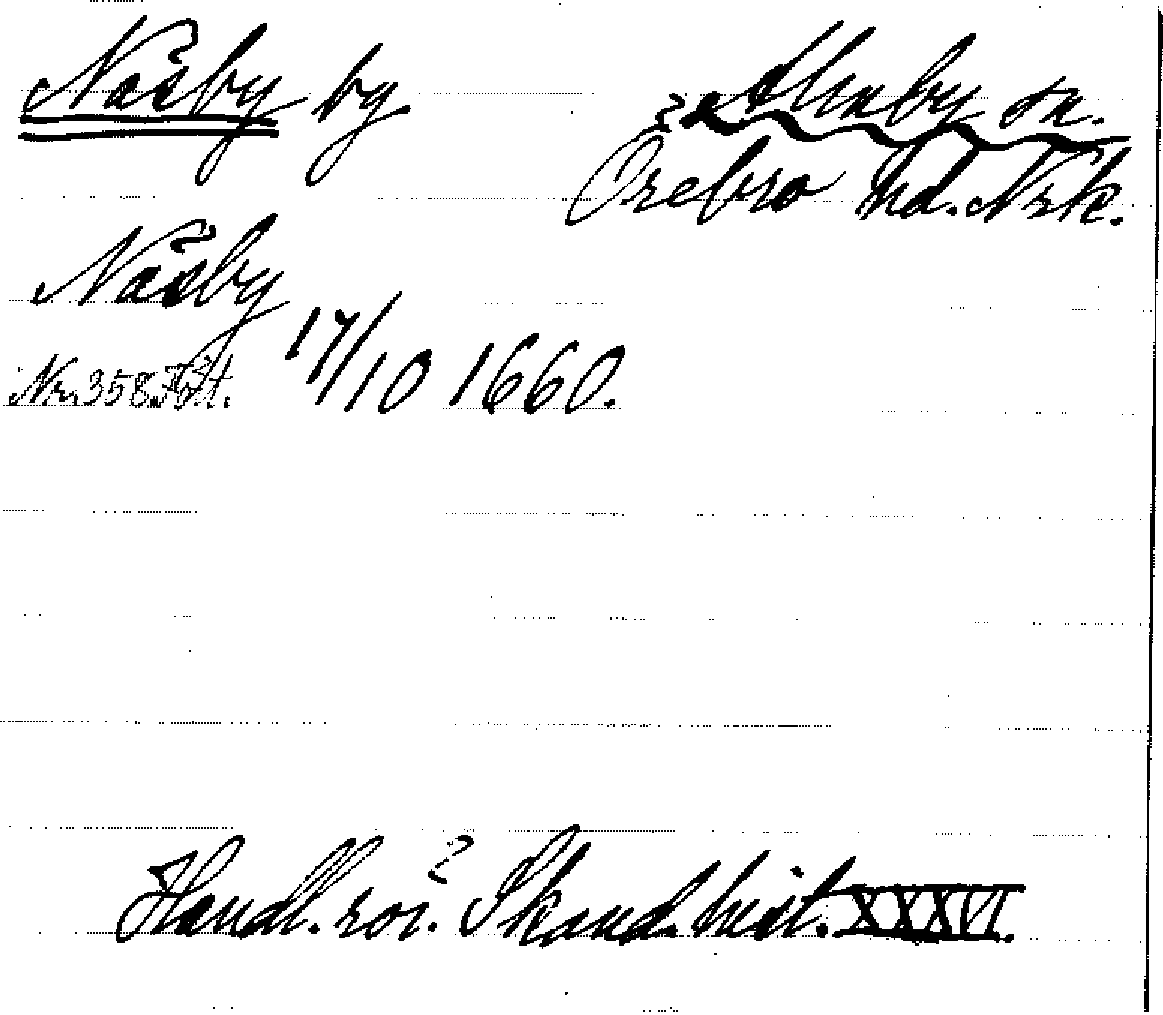 Näsby by
Almby sn.
Örebro hd. Nrk.
Näsby
17/10 1660.
Nr. 358
Handl. rör. Skand. hist. XXXVI.